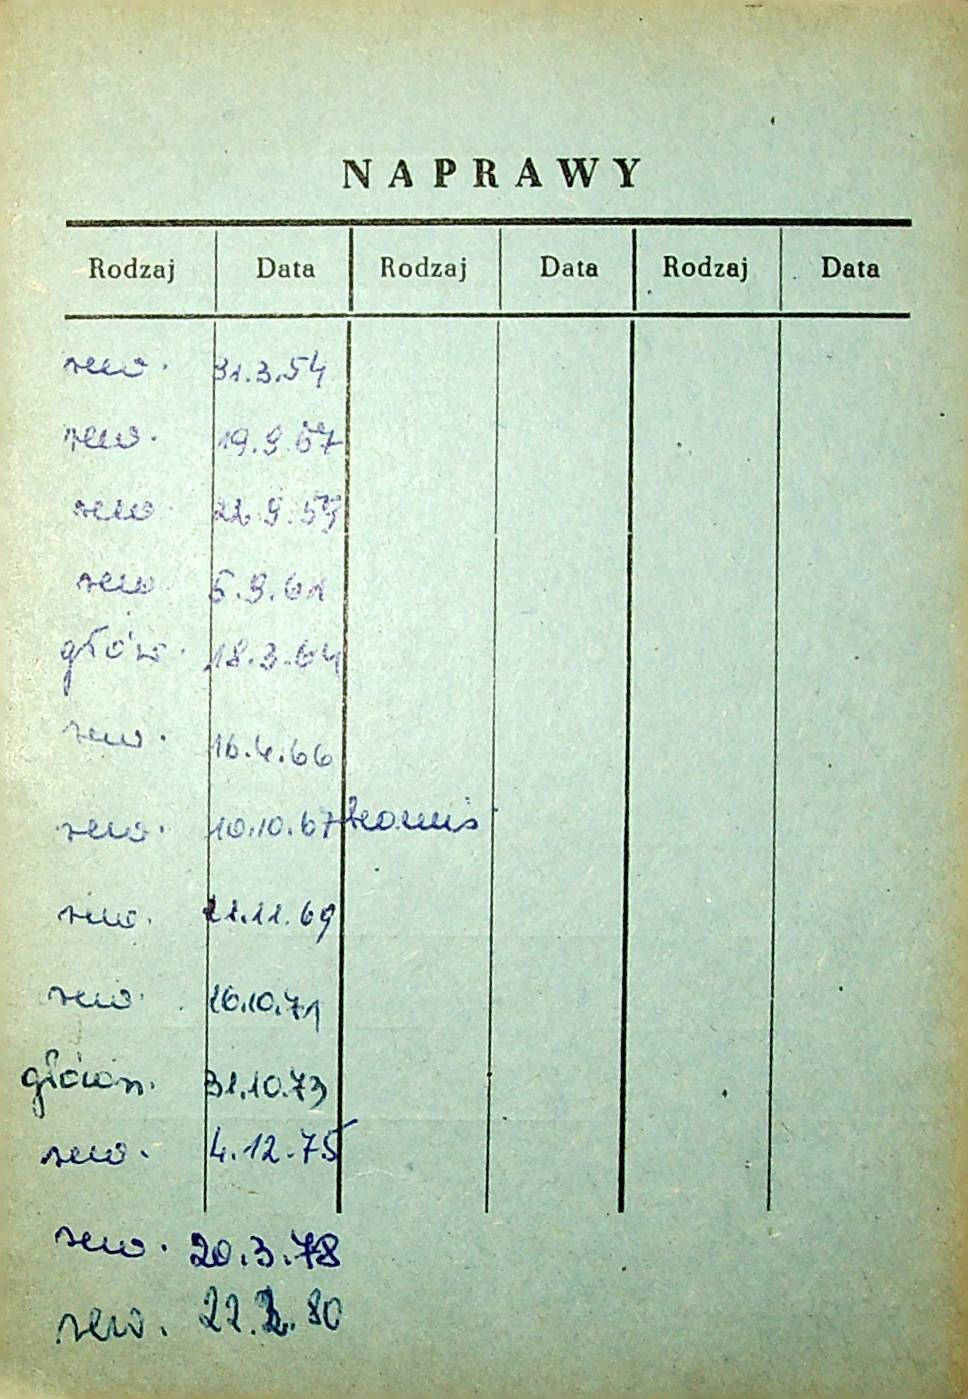 NAPRAWY
Rodzaj Data Rodzaj Data Rodzaj Data
rew. 31.3.54
rew. 19.9.57
rew. 22.9.59
rew. 5.9.61
głów. 18.3.64
rew. 16.4.66
rew. 10.10.67
rew. 21.11.69
rew. 16.10.71
główn. 31.10.73
rew. 4.12.75
rew. 20.3.78
rew. 22.2.80